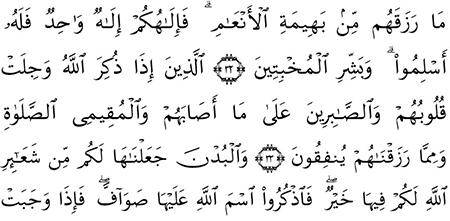 مَا رَزَقَهُم مِّنۢ بَهِيمَةِ الْأَنْعَامِ ۗ فَإِلَٰهُكُمْ إِلَٰهٌ وَٰحِدٌ فَلَهُ
أَسْلِمُواْ ۗ وَبَشِّرِ الْمُخْبِتِينَ ٣٢ الَّذِينَ إِذَا ذُكِرَ اللَّهُ وَجِلَتْ
قُلُوبُهُمْ وَالصَّٰبِرِينَ عَلَىٰ مَا أَصَابَهُمْ وَالْمُقِيمِى الصَّلَوٰةِ
وَمِمَّا رَزَقْنَٰهُمْ يُنفِقُونَ ٣٣ وَالْبُدْنَ جَعَلْنَٰهَا لَكُم مِّن شَعَٰٓئِرِ
اللَّهِ لَكُمْ فِيهَا خَيْرٌ ۖ فَاذْكُرُواْ اسْمَ اللَّهِ عَلَيْهَا صَوَآفَّ ۖ فَإِذَا وَجَبَتْ